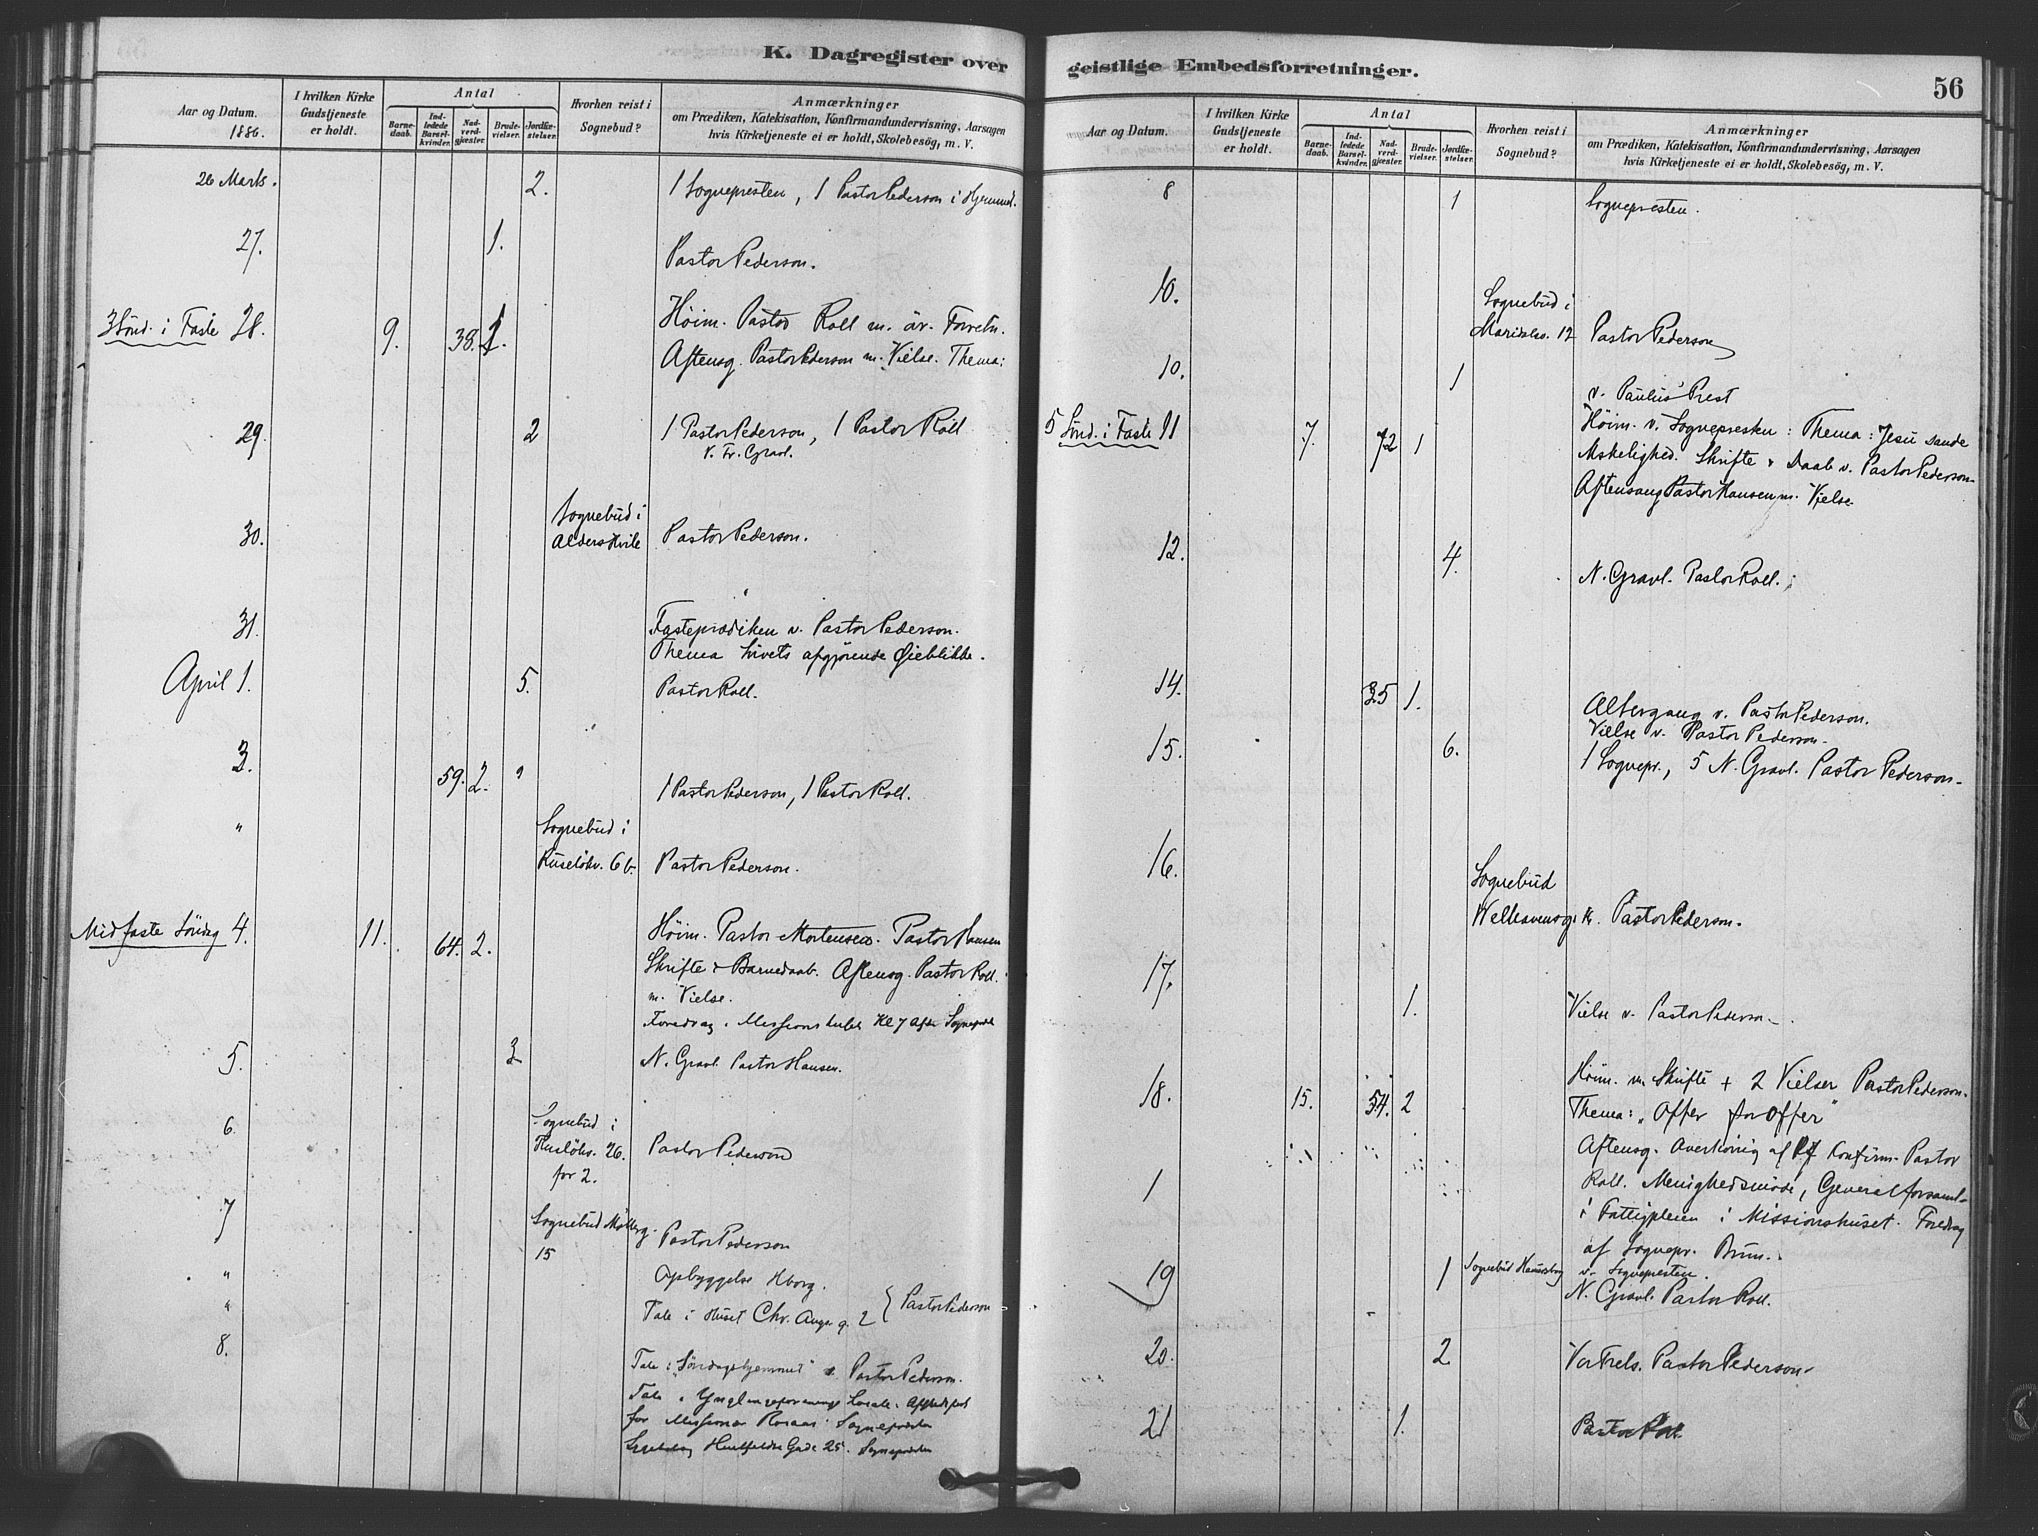 K. Dagregister over
Aar og Datum.
1886.
I hvilken Kirke
Gudstjeneste
er holdt.
Antal
Barne-
daab.
Ind-
ledede
Barsel-
kvinder.
Nad-
verd-
gjæster.
Brude-
vielser.
Jordfæ-
stelser.
Hvorhen reist i
Sognebud?
Anmærkninger
om Prædiken, Katekisation, Konfirmandundervisning, Aarsagen
hvis Kirketjeneste ei er holdt, Skolebesög, m. V.
26 Marts. 2. 1 Sognepresten, 1 Pastor Pederson i Hjemmet.
27. 1. Pastor Pederson.
3 Sönd. i Faste 28. 9. 38. 1. Höim. Pastor Roll m. öv. Forretn.
Aftensg. Pastor Pederson m. Vielse. Thema:
29. 2 1 Pastor Pederson, 1 Pastor Roll
V. Fr. Gravl.
30. Sognebud i
Aldershvile Pastor Pederson.
31. Fasteprædiken v. Pastor Pederson.
Thema Livets afgjörende Øieblikke.
April 1. 5. Pastor Roll.
3. 59. 2. 1 Pastor Pederson, 1 Pastor Roll.
" Sognebud i
Ruselökv. 6 b. Pastor Pederson.
Midfaste Söndag 4. 11. 64. 2. Höim. Pastor Mortensen. Pastor Hansen
Skrifte & Barnedaab. Aftensg. Pastor Roll.
m. Vielse.
Foredrag i Missionshuset Kl 7 Aften
5. 3 N. Gravl. Pastor Hansen.
6. Sognebud i
26.
for 2. Pastor Pederson
7 Sognebud Möllerg.
15 Pastor Pederson
" Opbyggelse Hborg.
" Tale i Huset Chr. Augs. g. 2 } Pastor Pederson
8. Tale i "Söndagshjemmet" v. Pastor Pederson.
Tale i Ynglingeforenings Locale. Afskedsfest
for Missionær Sognepresten
Gade 25. Sognepresten
geistlige Embedsforretninger.
56
Aar og Datum.
I hvilken Kirke
Gudstjeneste
er holdt.
Antal
Barne-
daab.
Ind-
ledede
Barsel-
kvinder.
Nad-
verd-
gjæster.
Brude-
vielser.
Jordfæ-
stelser.
Hvorhen reist i
Sognebud?
Anmærkninger
om Prædiken, Katekisation, Konfirmandundervisning, Aarsagen
hvis Kirketjeneste ei er holdt, Skolebesög, m. V.
8 1 Sognepresten.
10. Sognebud i
Maridalsv. 12 Pastor Pederson
10. 1 v. Paulus' Prest
5 Sönd. i Faste 11 7. 72 1 Höim. v. Sognepresten: Thema: Jesu sande
Mskelighed. Skrifte & Daab v. Pastor Pederson
Aftensang Pastor Hansen m. Vielse
12. 4. N. Gravl. Pastor Roll.
14. 35 1. Altergang v. Pastor Pederson.
Vielse v. Pastor Pederson.
15. 6. 1 Sognepr., 5 N. Gravl. Pastor Pederson
16. Sognebud
Welhavensg. Pastor Pederson.
17. 1. Vielse v. Pastor Pederson
18. 15. 54. 2 Höim. m. Skrifte + 2 Vielser Pastor Pederson.
Thema: "Offer for Offer"
Aftensg. Overhöring af Konfirm. Pastor
Roll. Menighedsmöde, Generalforsaml.
i Fattigpleien i Missionshuset. Foredrag
af Sognepr. Bruun.
19 1 Sognebud v. Sognepresten.
N. Gravl. Pastor Roll.
20. 2 Vor Frels. Pastor Pederson
21 1. Pastor Roll